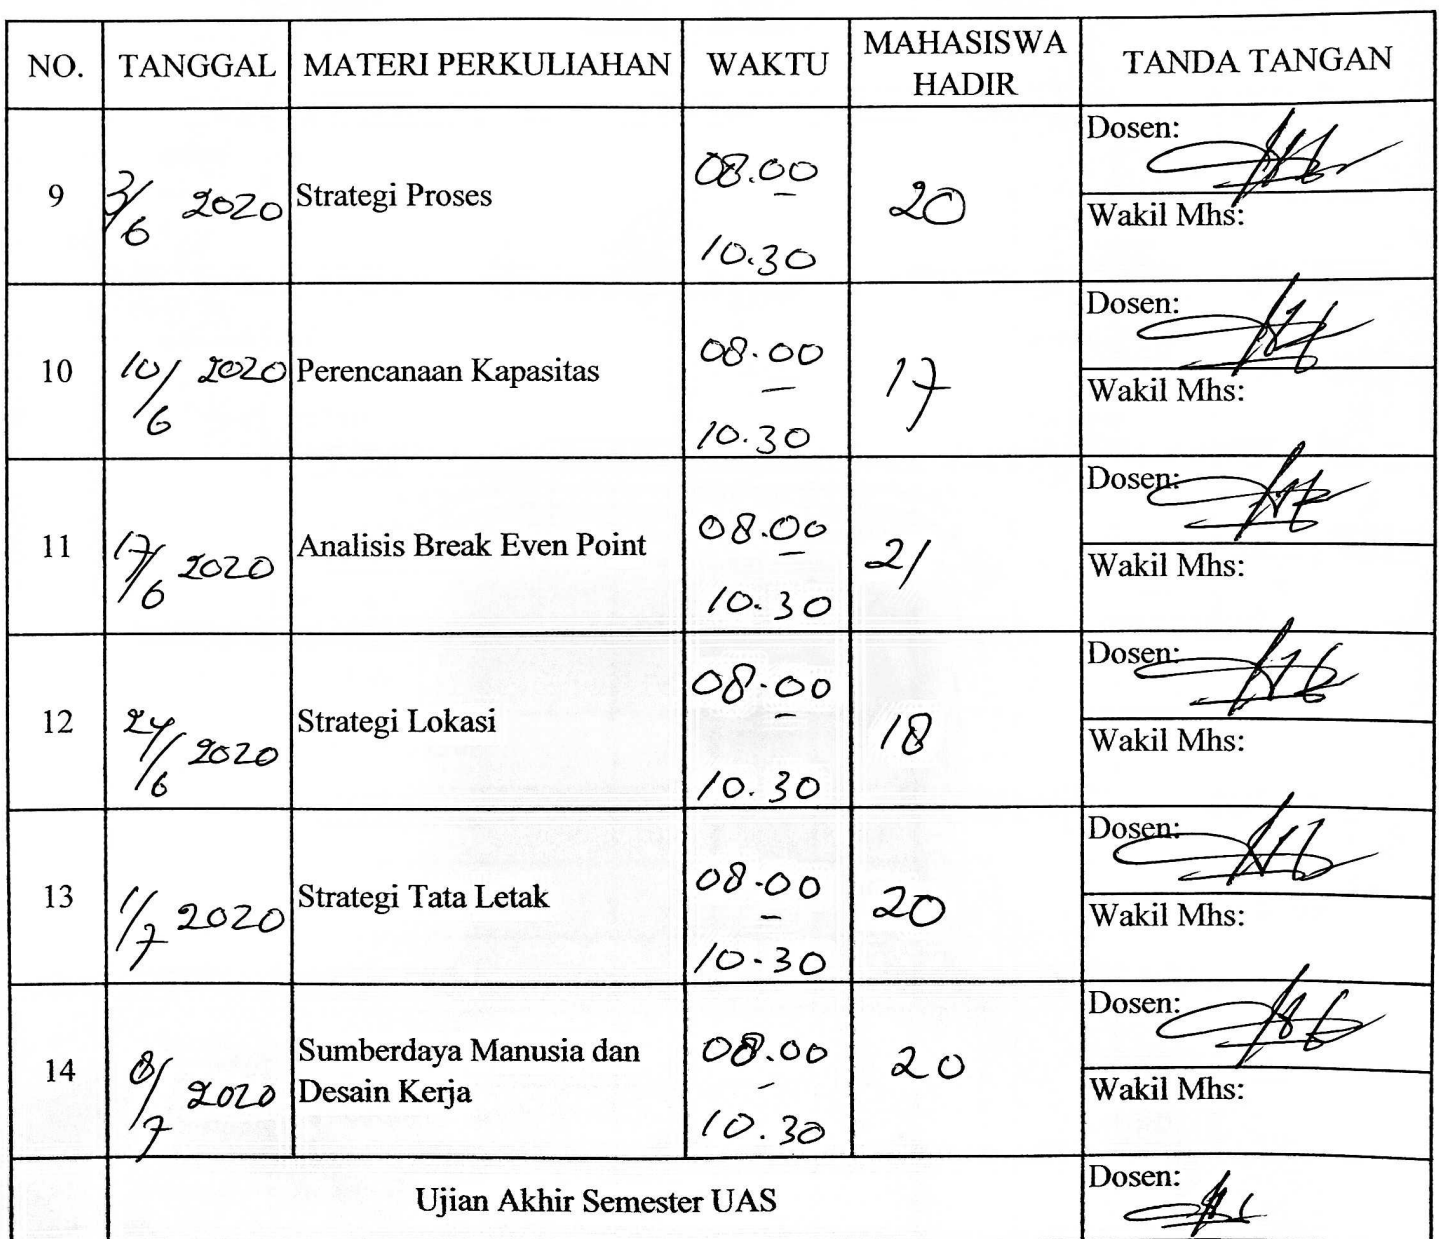 NO. TANGGAL MATERI PERKULIAHAN WAKTU MAHASISWA HADIR TANDA TANGAN
9 3/6 2020 Strategi Proses 08.00 - 10.30 20 Dosen:
Wakil Mhs:
10 10/6 2020 Perencanaan Kapasitas 08.00 - 10.30 17 Dosen:
Wakil Mhs:
11 17/6 2020 Analisis Break Even Point 08.00 - 10.30 21 Dosen:
Wakil Mhs:
12 24/6 2020 Strategi Lokasi 08.00 - 10.30 18 Dosen:
Wakil Mhs:
13 1/7 2020 Strategi Tata Letak 08.00 - 10.30 20 Dosen:
Wakil Mhs:
14 8/7 2020 Sumberdaya Manusia dan Desain Kerja 08.00 - 10.30 20 Dosen:
Wakil Mhs:
Ujian Akhir Semester UAS Dosen: